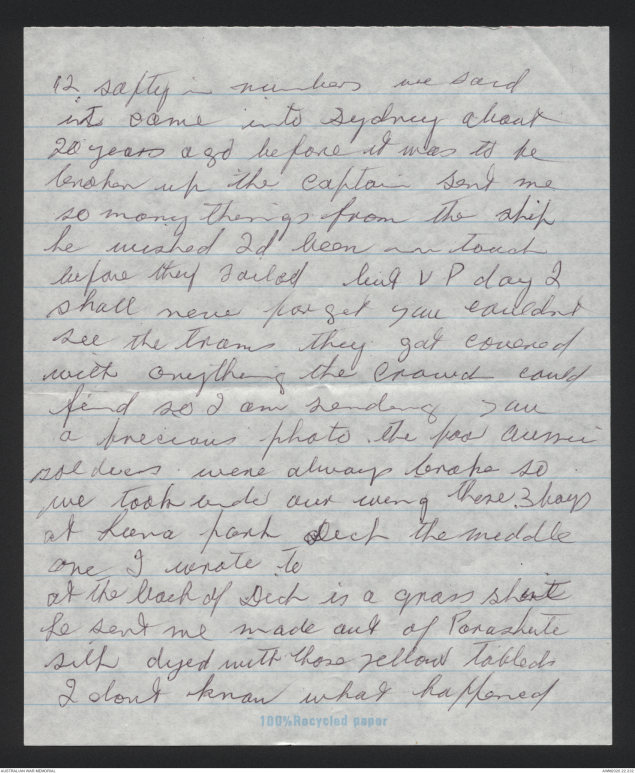 12 safty in numbers we said
it came into Sydney about
20 years ago before it was to be
broken up the captain sent me
so many things from the ship
he wished Id been in touch
before they sailed but V P day I
shall never forget you couldnt
see the trams they got covered
with anything the crowd could
find so I am sending you
a precious photo. the poor aussie
soldiers were always broke so
we took under our wing these 3 boys
at Luna park Dick the middle
one I wrote to
at the back of Dick is a grass skirt
he sent me made out of Parashute
silk dyed with those yellow tableds
I dont know what happened
100%Recycled paper
AUSTRALIAN WAR MEMORIAL